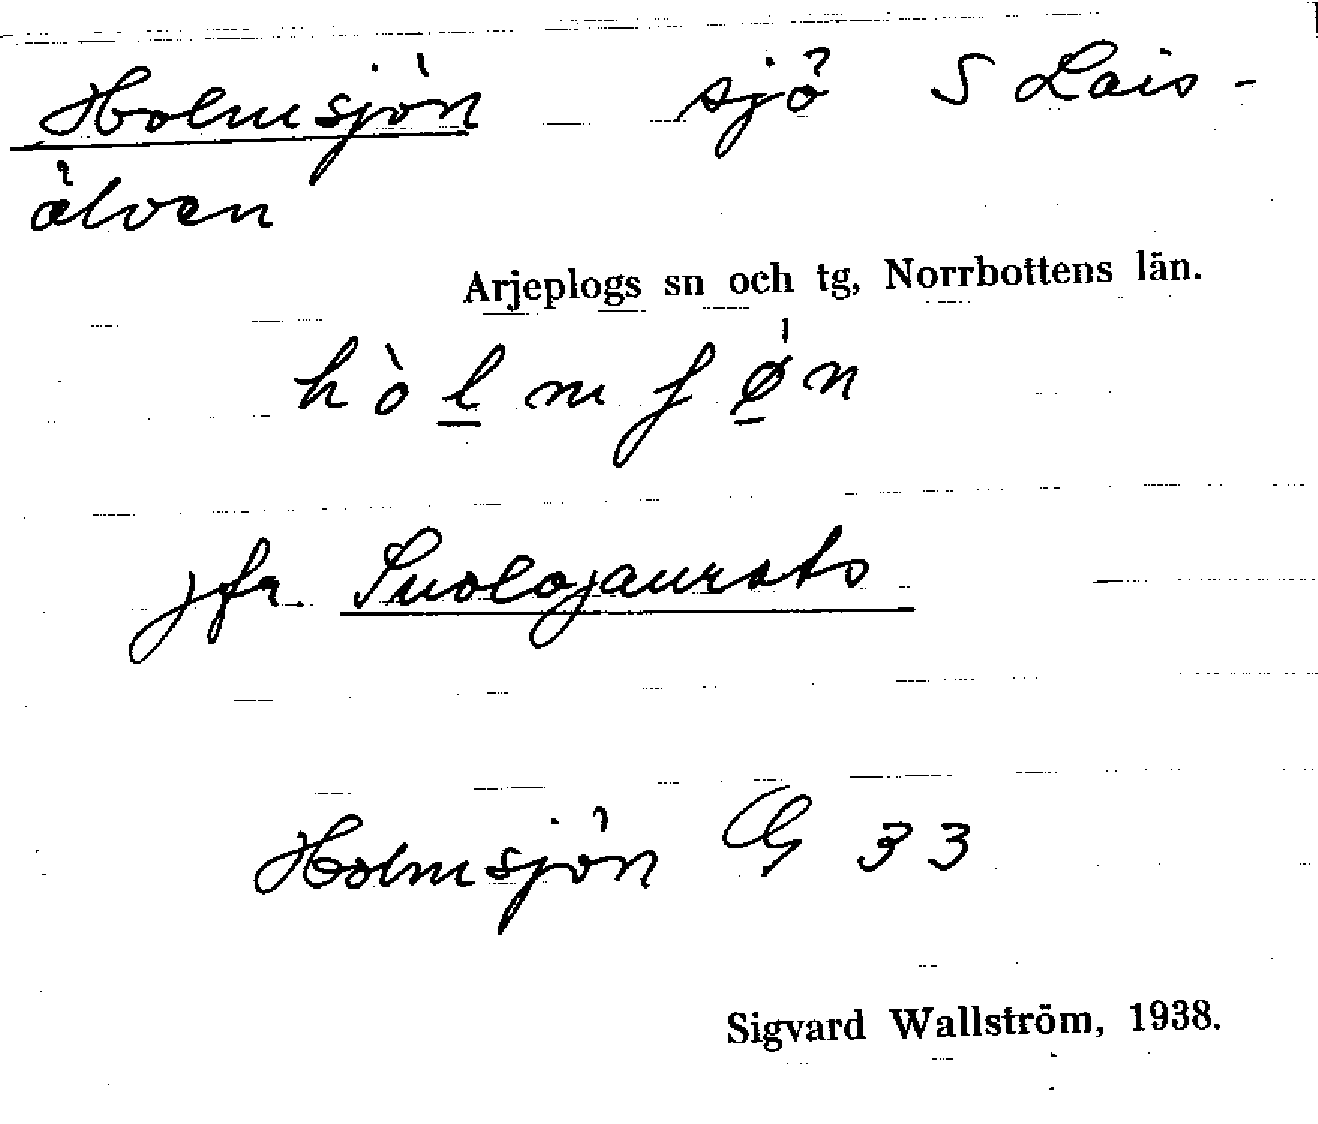 Holmsjön sjö S Lais-
älven
Arjeplogs sn och tg, Norrbottens län.
hòl̲mʃø̲̍n
jfr Suolojaurats
Holmsjön G 33
Sigvard Wallström, 1938.